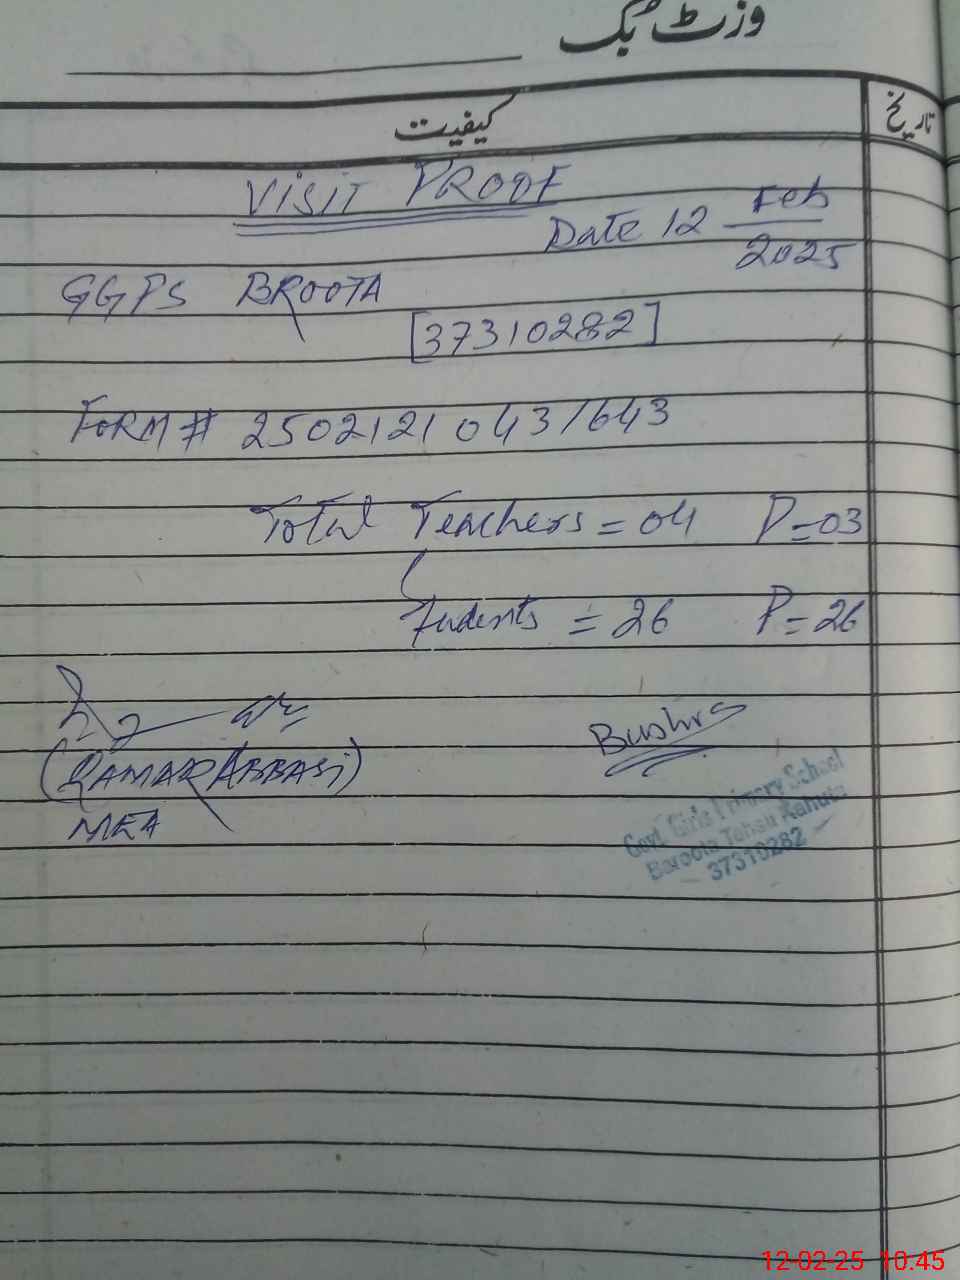 وزٹ بک
کیفیت
تاریخ
VISIT PROOF
Date 12 Feb
2025
GGPS BROOTA
[37310282]
FORM # 2502121043/643
Total Teachers = 04 P=03
Students = 26 P=26
Bushra
(QAMAR ABBASI)
MEA
Govt. Girls Primary School
Baroota Tehsil Kahuta
37310282
12-02-25 10.45